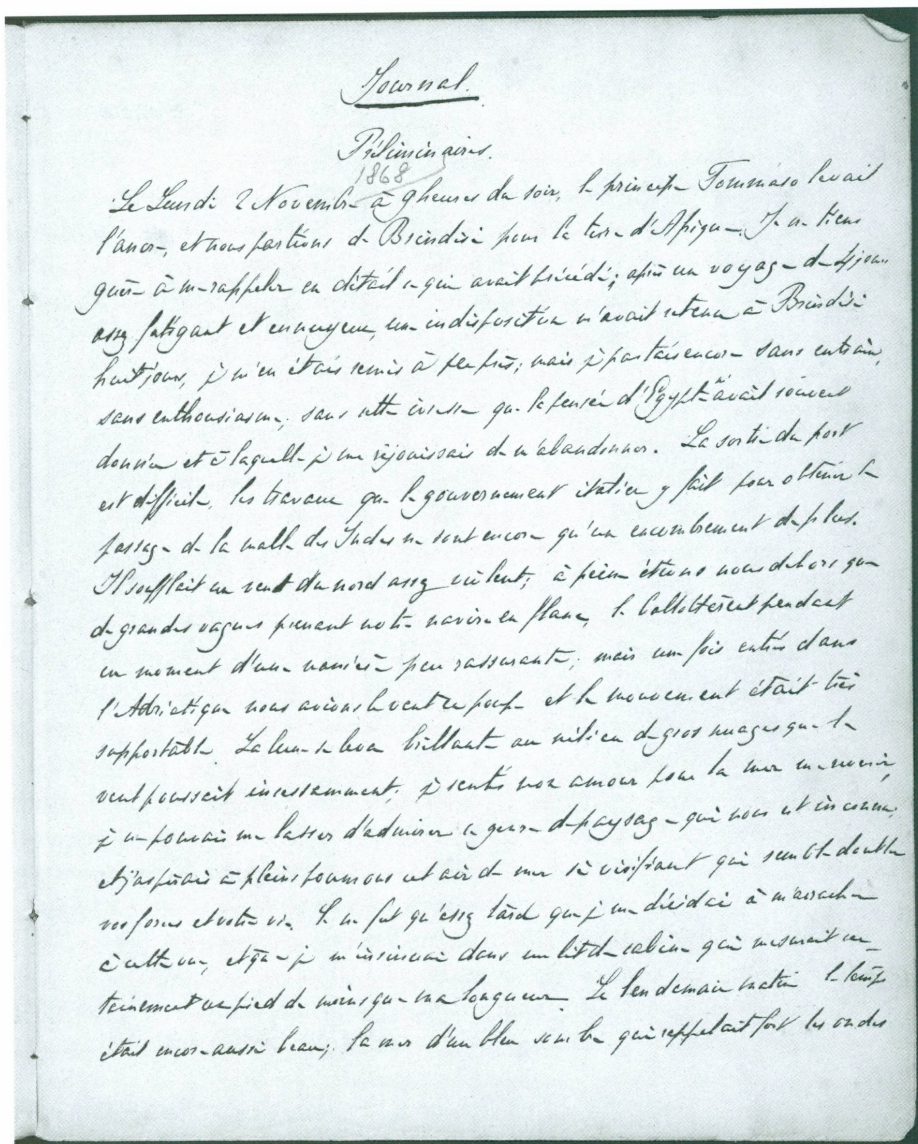 Journal.
Préliminaires.
1868
Le Lundi 2 Novembre à 9 heures du soir, le principe Tommaso levait
l'ancre, et nous partions de Brindisi pour la terre d'Afrique. Je ne tiens
guère à me rappeler en détail ce qui avait précédé; après un voyage de jours
assez fatigant et ennuyeux, une indisposition m'avait retenu à Brindisi
huit jours, je m'en étais remis à peu près; mais je partais encore sans entrain,
sans enthousiasme, sans cette ivresse que la pensée d'Egypte m'avait souvent
donnée et à laquelle je me réjouissais de m'abandonner. La sortie du port
est difficile, les travaux que le gouvernement italien y fait pour obtenir le
passage de la malle des Indes ne sont encore qu'un encombrement de plus.
Il soufflait un vent du nord assez violent; à peine étions nous dehors que
de grandes vagues prenant notre navire en flanc, le ballottèrent pendant
un moment d'une manière peu rassurante; mais une fois entrés dans
l'Adriatique nous avions le vent en poupe et le mouvement était très
supportable. La lune se leva brillante au milieu de gros nuages que le
vent poussait incessamment; je sentis mon amour pour la mer me revenir,
je ne pouvais me lasser d'admirer ce genre de paysage qui nous est inconnu,
et j'aspirais à pleins poumons cet air de mer si vivifiant qui semble doubler
vos forces et votre vie. Ce ne fut qu'assez tard que je me décidai à m'arracher
à cette vue, et que je m'insinuai dans un lit de cabine qui mesurait cer-
tainement un pied de moins que ma longueur. Le lendemain matin le temps
était encore aussi beau; la mer d'un bleu sombre qui rappelait fort les ondes